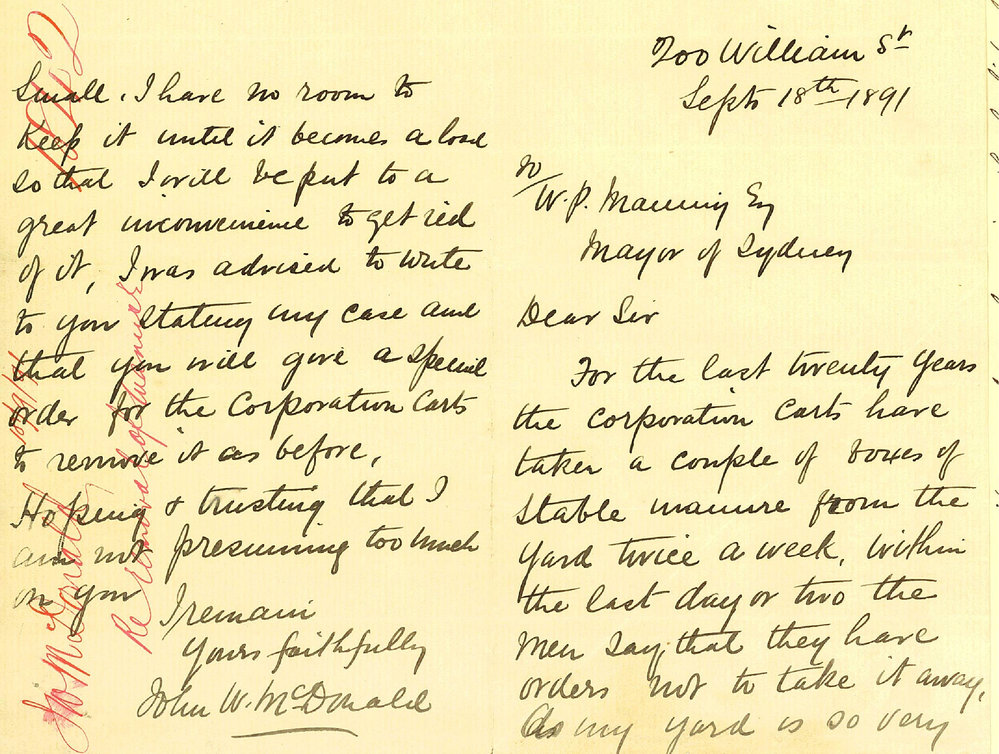 200 William St
Septr 18th 1891
To
W. P. Manning Esq
Mayor of Sydney
Dear Sir
For the last twenty years
the corporation carts have
taken a couple of boxes of
stable manure from the
yard twice a week, within
the last day or two the
men say that they have
orders not to take it away,
As my yard is so very
small. I have no room to
keep it until it becomes a load
so that I will be put to a
great inconvenience to get rid
of it, I was advised to write
to you stating my case and
that you will give a special
order for the corporation carts
to remove it as before,
Hoping & trusting that I
am not presuming too much
on you
I remain
Yours faithfully
John W. McDonald
Jno McDonald
Re removal of manure